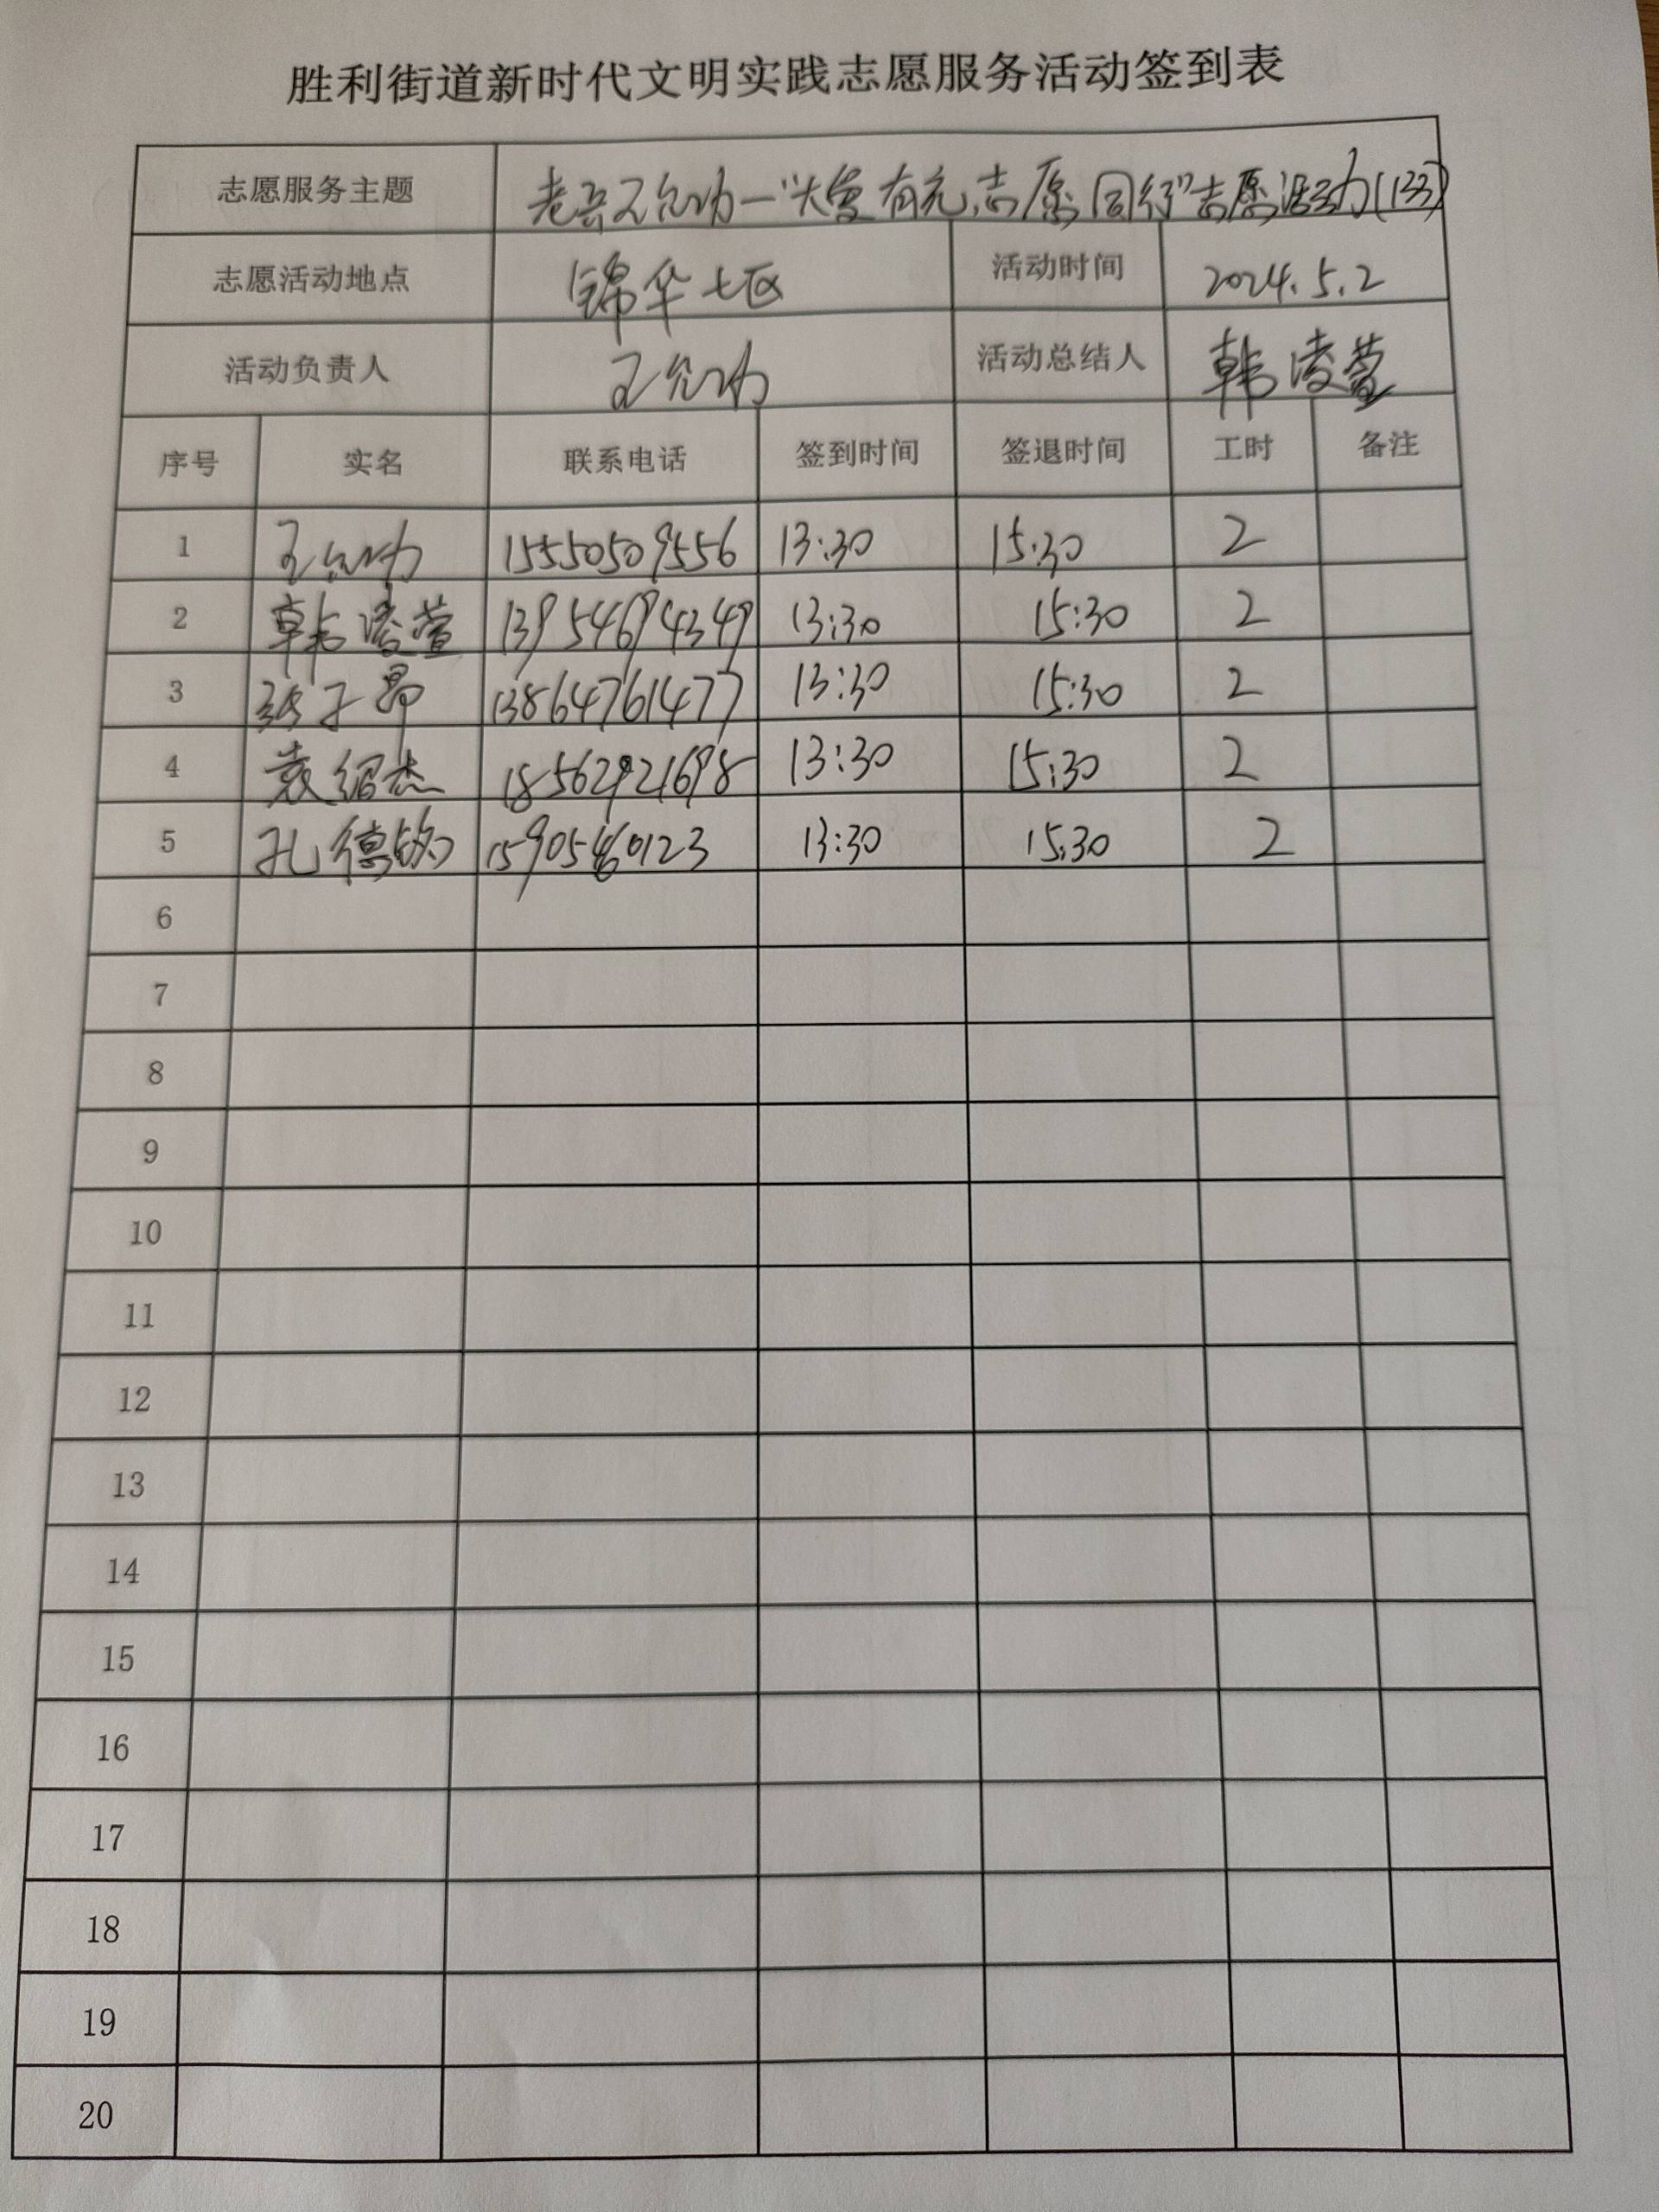 胜利街道新时代文明实践志愿服务活动签到表
志愿服务主题 老兵王允功一"大爱有元,志愿同行"志愿活动(133)
志愿活动地点 锦华七区 活动时间 2024.5.2
活动负责人 王允功 活动总结人 韩凌萱
序号 实名 联系电话 签到时间 签退时间 工时 备注
1 王允功 15550509556 13:30 15:30 2
2 韩凌萱 13954694349 13:30 15:30 2
3 子昂 13864761477 13:30 15:30 2
4 袁绍杰 18562921698 13:30 15:30 2
5 孔德铭 13:30 15:30 2
6
7
8
9
10
11
12
13
14
15
16
17
18
19
20